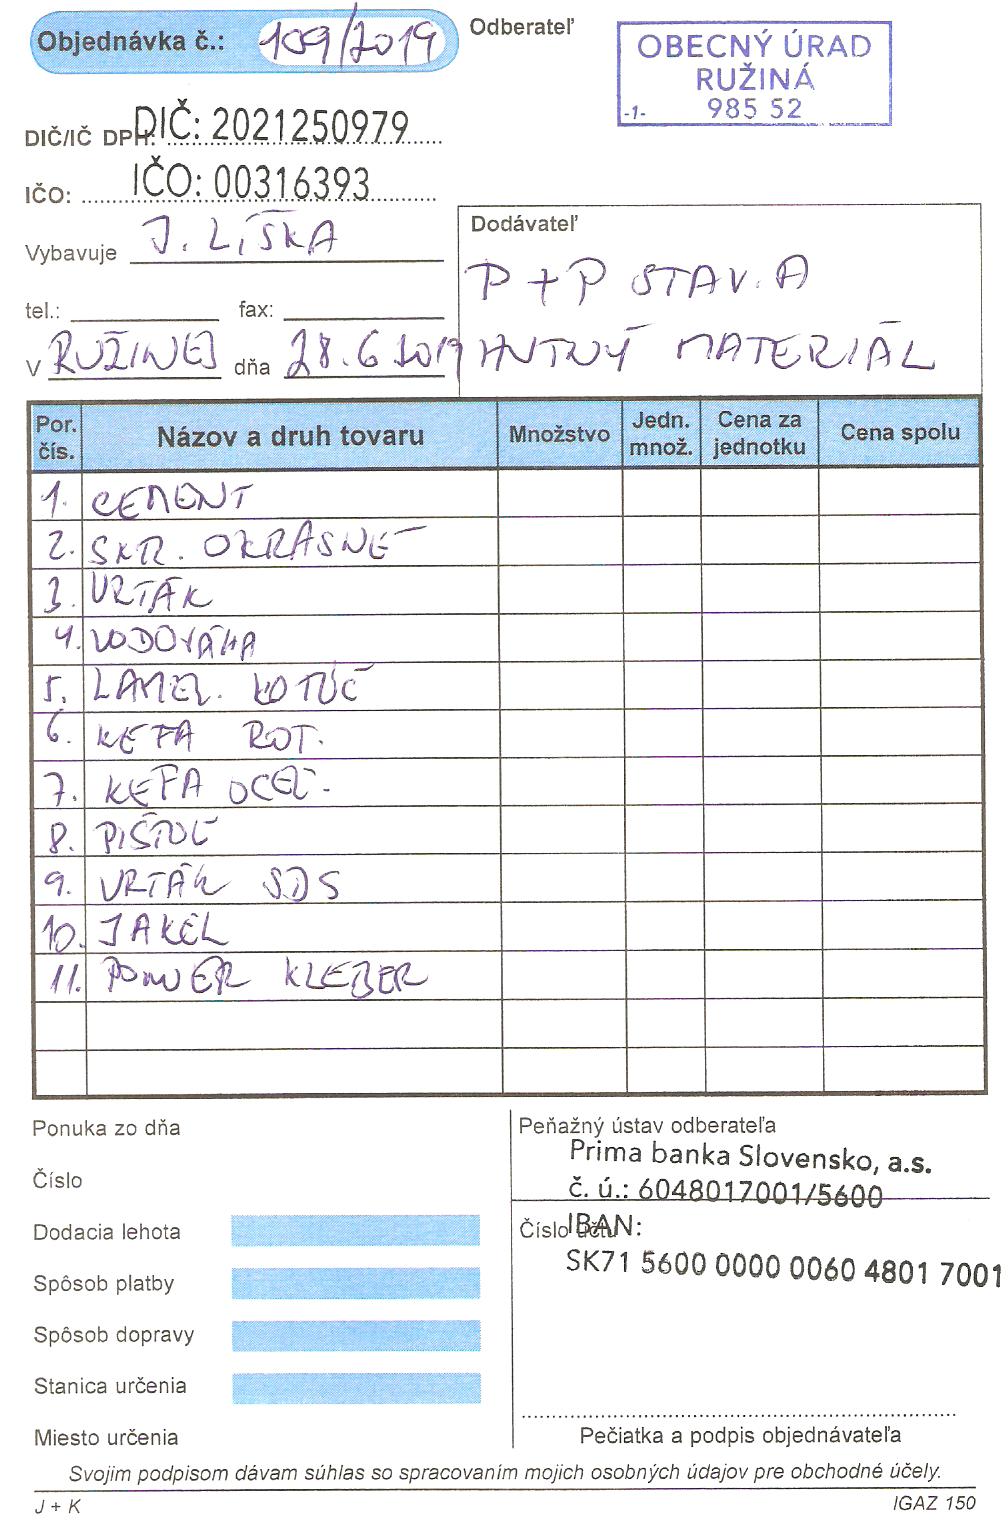 Objednávka č.: 109/2019
Odberateľ
OBECNÝ ÚRAD
RUŽINÁ
-1- 985 52
DIČ/IČ DPH: DIČ: 2021250979
IČO: IČO: 00316393
Vybavuje J. LÍŠKA
tel.: fax:
V RUŽINEJ dňa 28.6 2019
Dodávateľ
P + P STAV. A
HUTNÝ MATERIÁL
Por. čís. Názov a druh tovaru Množstvo Jedn. množ. Cena za jednotku Cena spolu
1. CEMENT
2. SKR. OKRASNÉ
3. VRTÁK
4. VODOVÁHA
5. LAMEL. KOTÚČ
6. KEFA ROT.
7. KEFA OCEĽ.
8. PIŠTOĽ
9. VRTÁK SDS
10. JAKEL
11. POWER KLEBER
Ponuka zo dňa
Číslo
Dodacia lehota
Spôsob platby
Spôsob dopravy
Stanica určenia
Miesto určenia
Peňažný ústav odberateľa
Prima banka Slovensko, a.s.
č. ú.: 6048017001/5600
Číslo účtu IBAN:
SK71 5600 0000 0060 4801 7001
Pečiatka a podpis objednávateľa
Svojim podpisom dávam súhlas so spracovaním mojich osobných údajov pre obchodné účely.
J + K IGAZ 150